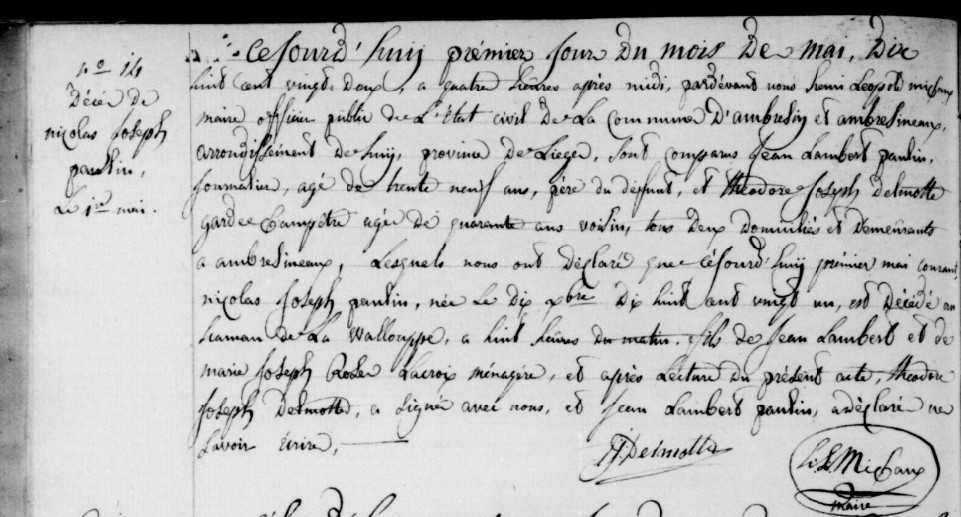 n.o 14
Décée de
nicolas Joseph
paulin,
Le 1er mai.
cejourd'huij prémier jour du mois de mai, dix
huit cent vingt-deux, a quatre heures après midi, pardévant nous henri Leopold michaux
maire officier public de L'Etat civil de La commune D'ambresin et ambresineaux,
arrondissement de huij, province de Liege, sont comparus Jean Lambert paulin,
journalier, agé de trente neuf ans, pére du defunt, et théodore Joseph Delmotte
garde Champêtre agée de quarante ans voisin, tous deux domiciliés et demeurants
a ambresineaux, Lesquels nous ont déclaré que cejourd'huij prémier mai courant,
nicolas Joseph paulin, née Le dix xbre dix huit cent vingt un, est décédé au
hameau de La Wallouppe, a huit heures du matin. fils de Jean Lambert et de
marie Joseph Lacroix ménagére, et après Lecture du présent acte, théodore
Joseph Delmotte, a signée avec nous, et Jean Lambert paulin, a déclaré ne
savoir écrire,
T.J. Delmotte
h. L. Michaux
maire